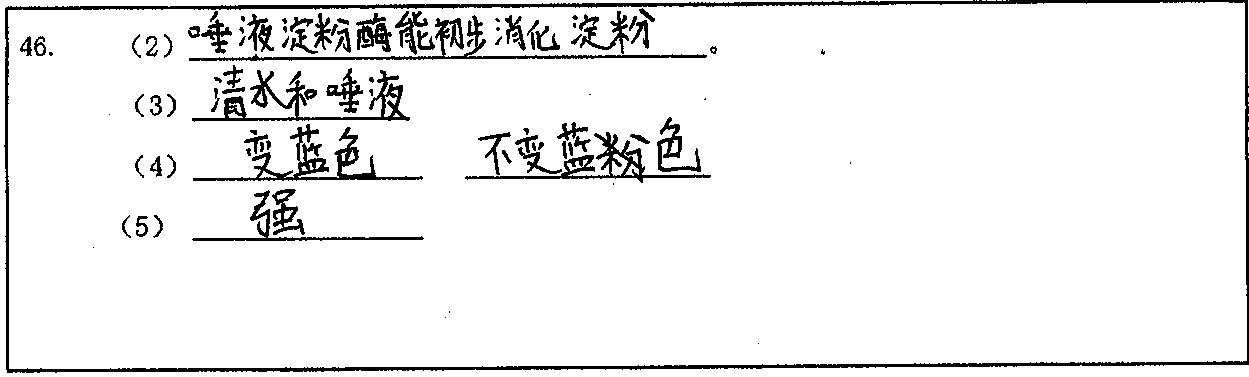 46. (2) 唾液淀粉酶能初步消化淀粉。
(3) 清水和唾液
(4) 变蓝色 不变蓝色
(5) 强